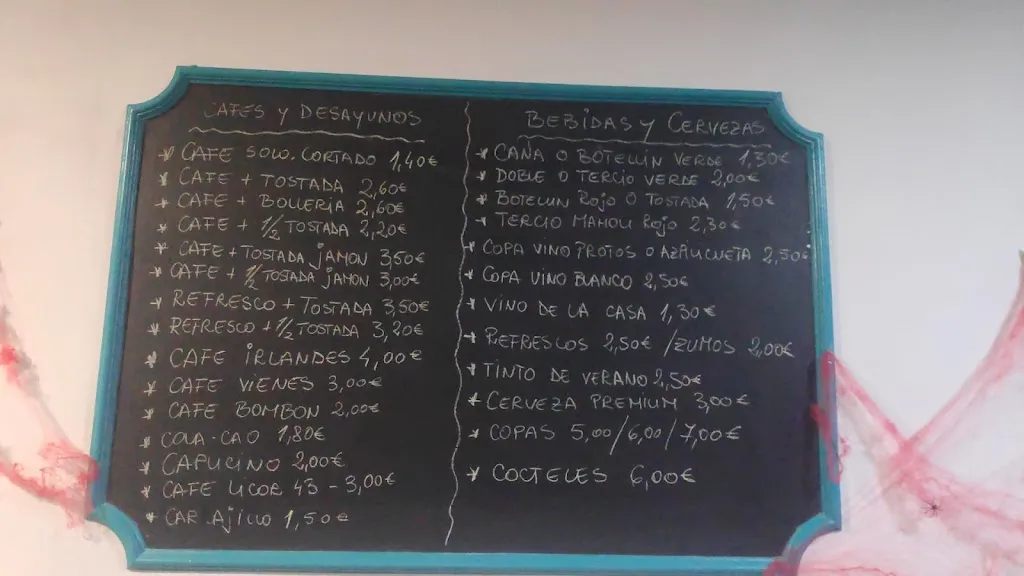 CAFES Y DESAYUNOS
* CAFE SOLO. CORTADO 1,40€
* CAFE + TOSTADA 2,60€
* CAFE + BOLLERIA 2,60€
* CAFE + 1/2 TOSTADA 2,20€
* CAFE + TOSTADA JAMON 3,50€
* CAFE + 1/2 TOSTADA JAMON 3,00€
* REFRESCO + TOSTADA 3,50€
* REFRESCO + 1/2 TOSTADA 3,20€
* CAFE IRLANDES 4,00€
* CAFE VIENES 3,00€
* CAFE BOMBON 2,00€
* COLA-CAO 1,80€
* CAPUCINO 2,00€
* CAFE LICOR 43 - 3,00€
* CARAJILLO 1,50€
BEBIDAS Y CERVEZAS
* CAÑA O BOTELLIN VERDE 1,30€
* DOBLE O TERCIO VERDE 2,00€
* BOTELLIN ROJO O TOSTADA 1,50€
* TERCIO MAHOU ROJO 2,30€
* COPA VINO PROTOS O AZPILICUETA 2,50€
* COPA VINO BLANCO 2,50€
* VINO DE LA CASA 1,30€
* REFRESCOS 2,50€ / ZUMOS 2,00€
* TINTO DE VERANO 2,50€
* CERVEZA PREMIUM 3,00€
* COPAS 5,00/6,00/7,00€
* COCTELES 6,00€